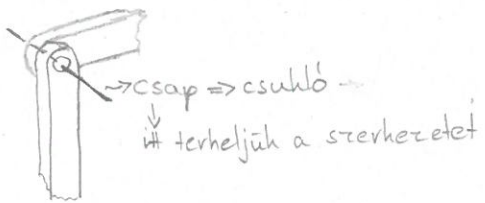 →csap ⇒ csukló
↓
itt terheljük a szerkezetet